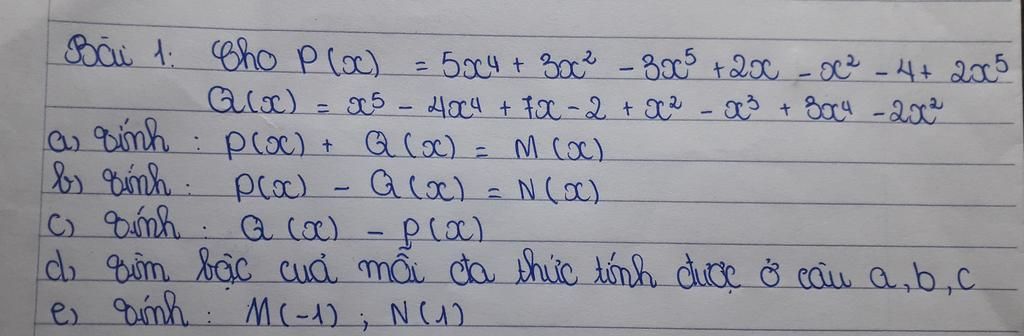 Bài 1: Cho P(x) = 5x⁴ + 3x² - 3x⁵ + 2x - x² - 4 + 2x⁵
Q(x) = x⁵ - 4x⁴ + 7x - 2 + x² - x³ + 3x⁴ - 2x²
a) Tính : P(x) + Q(x) = M(x)
b) Tính : P(x) - Q(x) = N(x)
c) Tính : Q(x) - P(x)
d) Tìm bậc cuả mỗi đa thức tính được ở câu a, b, c
e) Tính : M(-1) ; N(1)